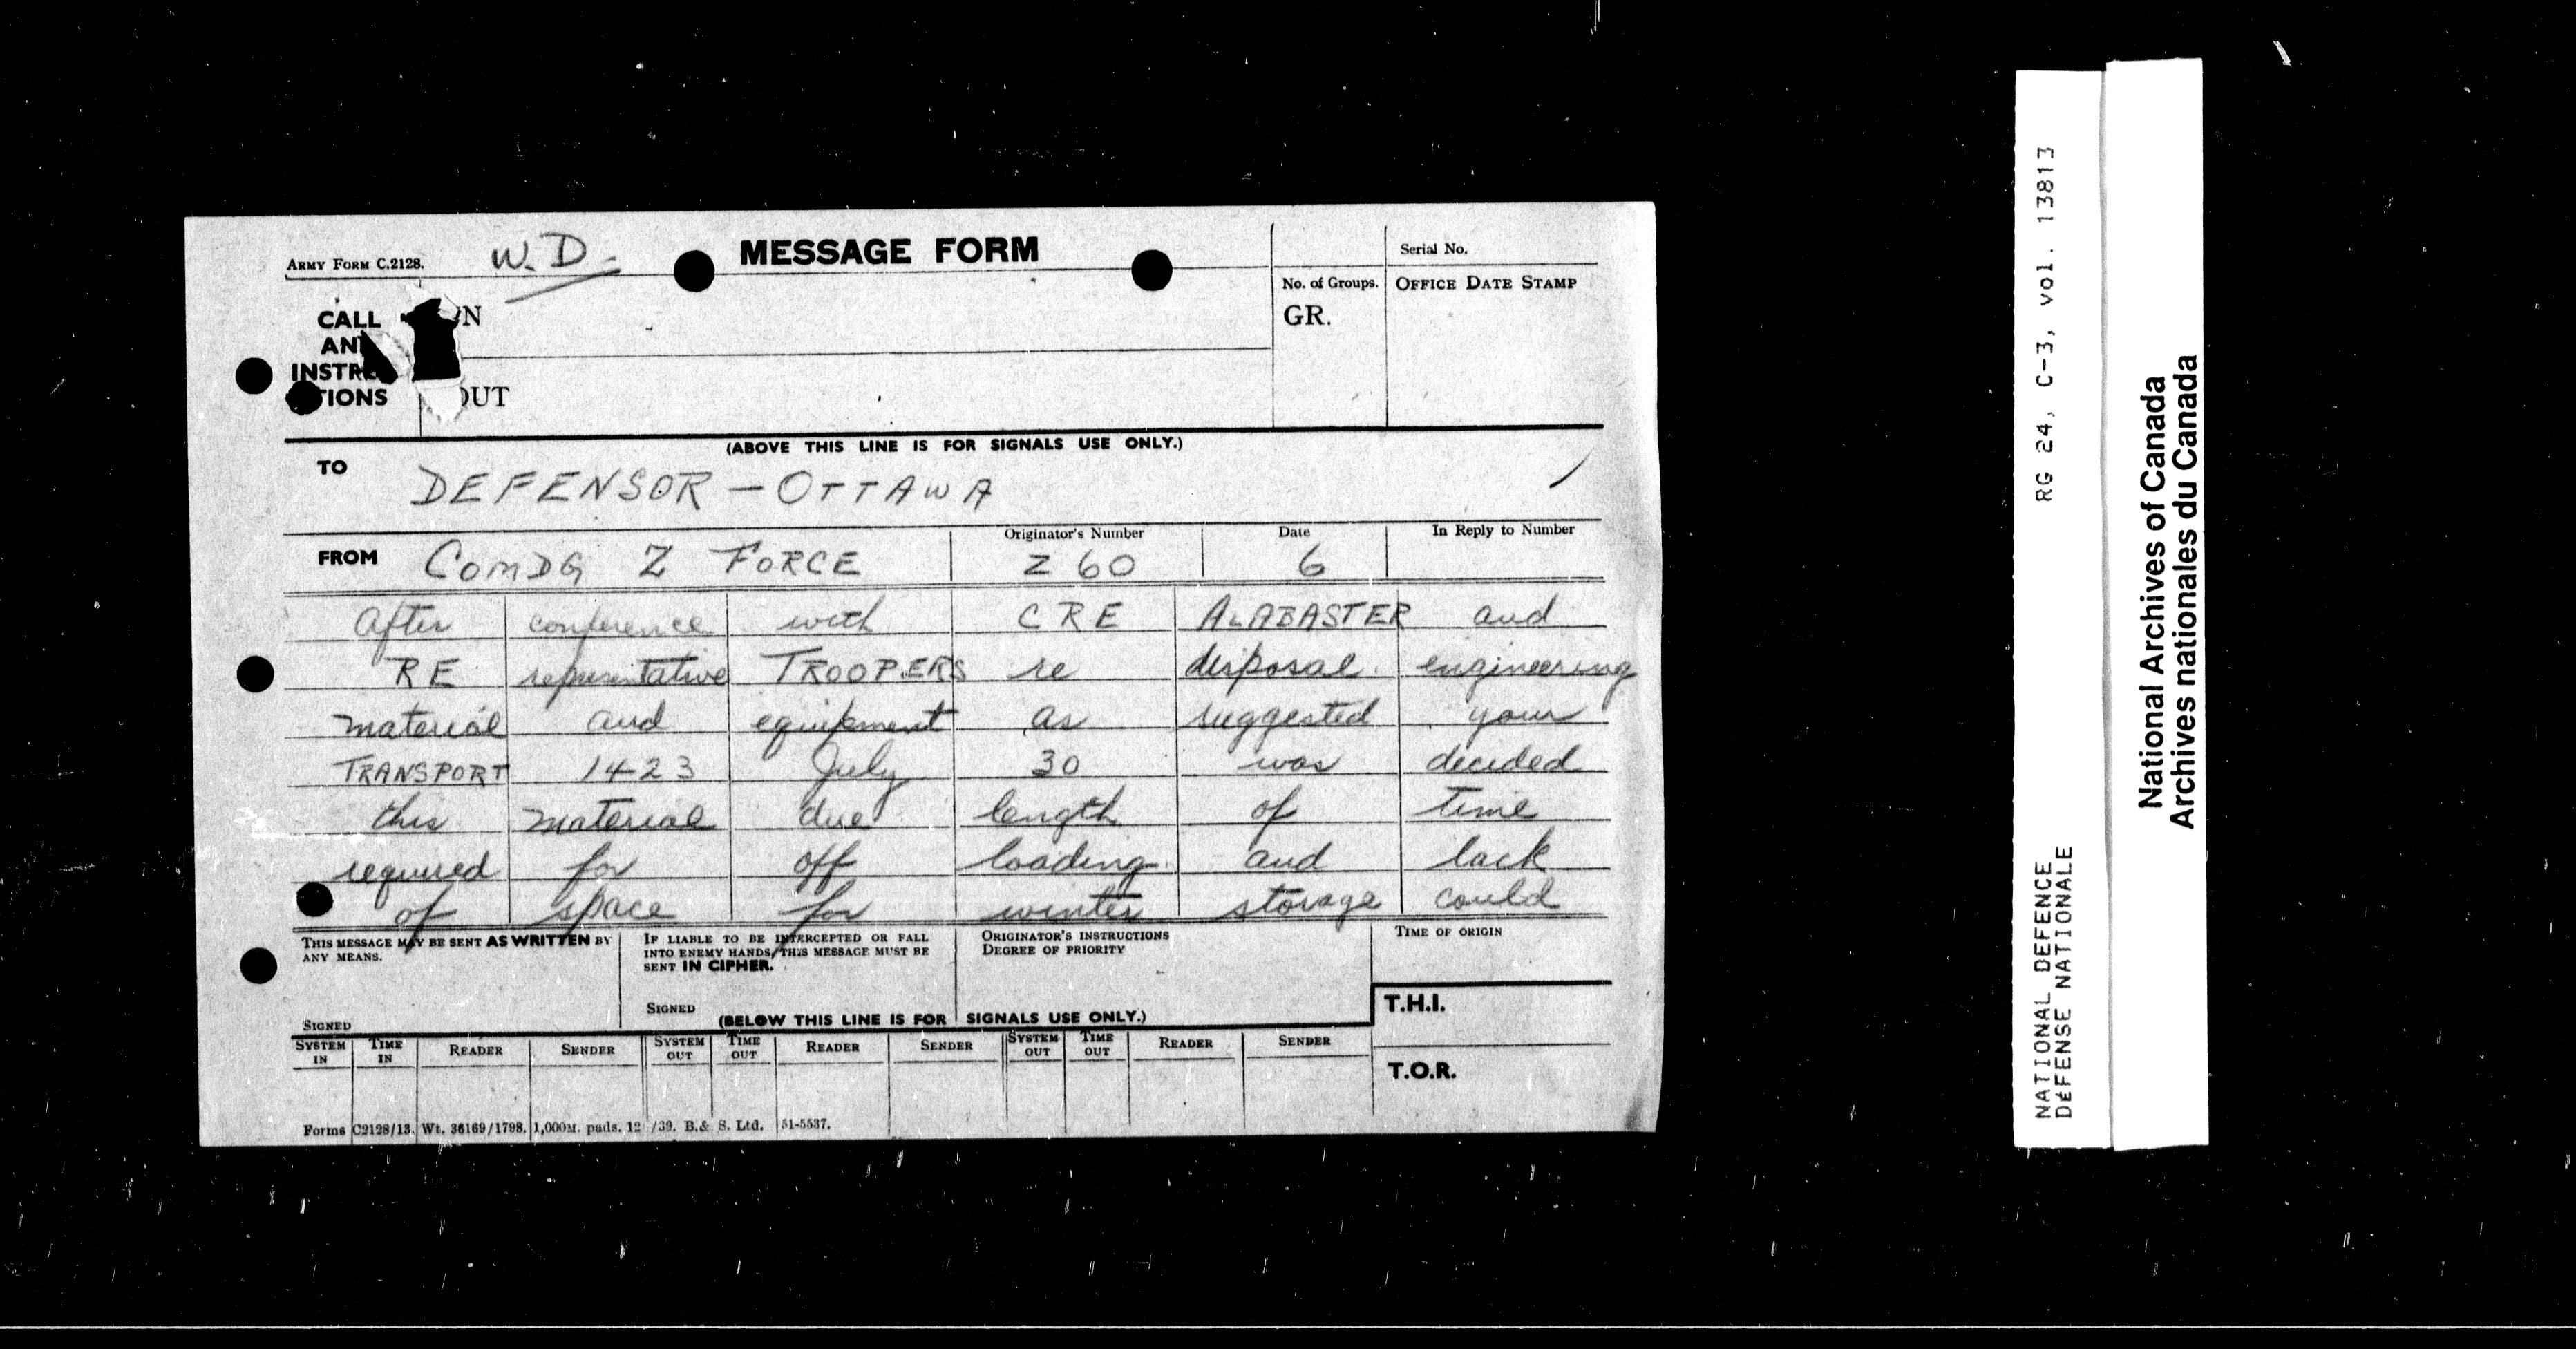 ARMY FORM C.2128.
W.D.
MESSAGE FORM
Serial No.
CALL
AND
INSTRUCTIONS
IN
OUT
No. of Groups.
GR.
OFFICE DATE STAMP
(ABOVE THIS LINE IS FOR SIGNALS USE ONLY.)
TO DEFENSOR - OTTAWA
FROM COMDG Z FORCE
Originator's Number
Z 60
Date
6
In Reply to Number
After conference with CRE ALABASTER and
RE representative TROOPERS re disposal engineering
material and equipment as suggested your
TRANSPORT 1423 July 30 was decided
this material due length of time
required for off loading and lack
of space for winter storage could
THIS MESSAGE MAY BE SENT AS WRITTEN BY
ANY MEANS.
SIGNED
IF LIABLE TO BE INTERCEPTED OR FALL
INTO ENEMY HANDS, THIS MESSAGE MUST BE
SENT IN CIPHER.
SIGNED
ORIGINATOR'S INSTRUCTIONS
DEGREE OF PRIORITY
TIME OF ORIGIN
(BELOW THIS LINE IS FOR SIGNALS USE ONLY.)
T.H.I.
T.O.R.
SYSTEM IN TIME IN READER SENDER SYSTEM OUT TIME OUT READER SENDER SYSTEM OUT TIME OUT READER SENDER
Forms C2128/13. Wt. 36169/1798. 1,000M. pads. 12/39. B.& S. Ltd. 51-5537.
RG 24, C-3, vol. 13813
NATIONAL DEFENCE
DEFENSE NATIONALE
National Archives of Canada
Archives nationales du Canada